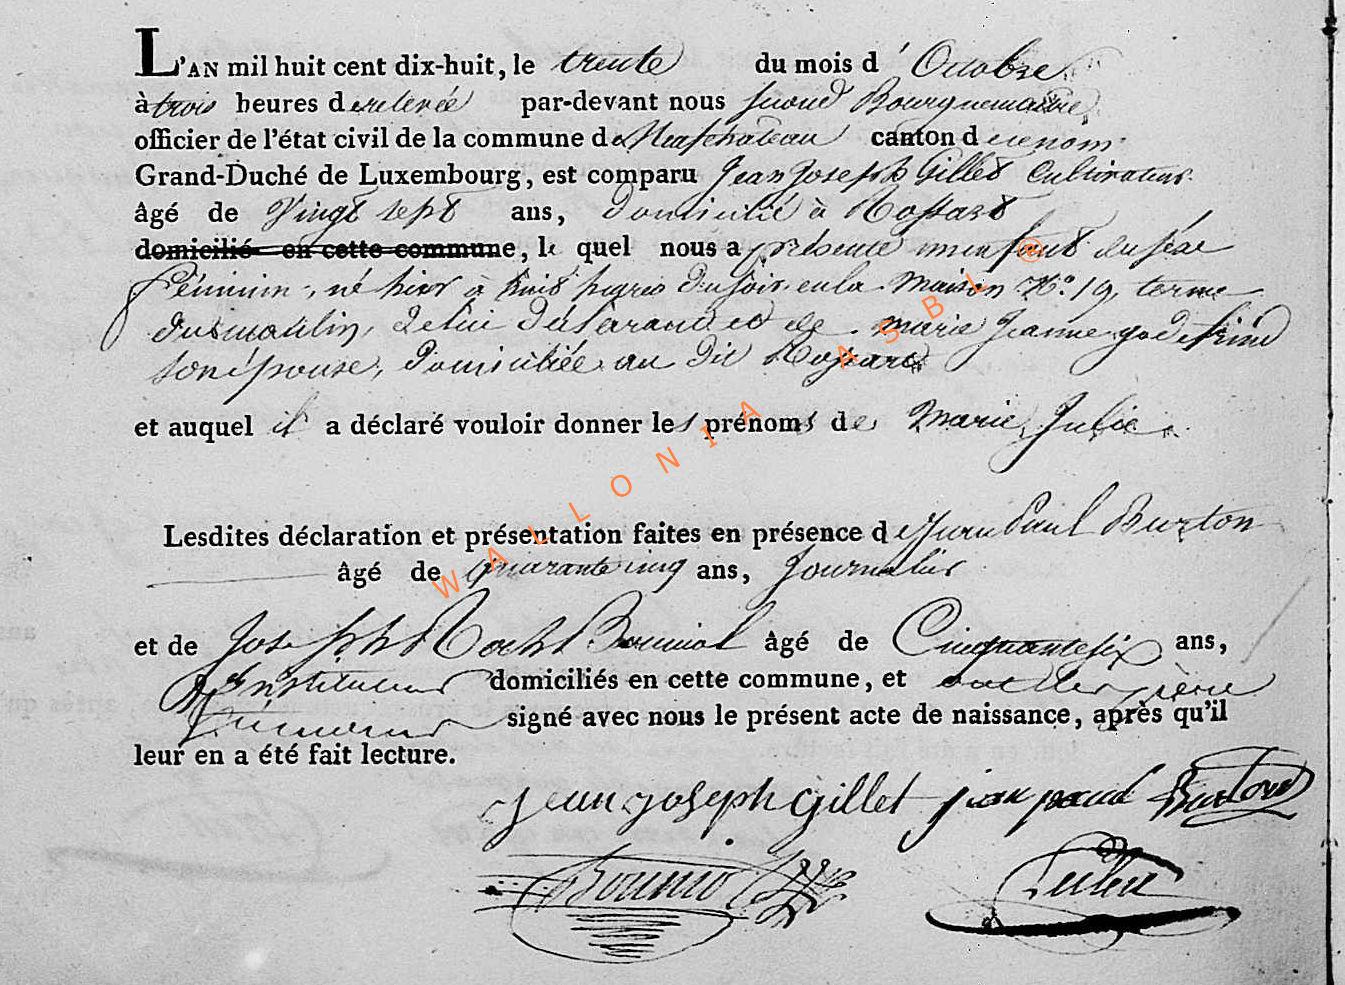 L'AN mil huit cent dix-huit, le trente du mois d'Octobre
à trois heures de relevée par-devant nous second Bourguemaitre
officier de l'état civil de la commune de Neufchateau canton du ce nom
Grand-Duché de Luxembourg, est comparu Jean Joseph Gillet Cultivateur
âgé de Vingt sept ans, domicilié à
domicilié en cette commune, le quel nous a présenté un enfant du sexe
féminin, né hier à huit heures du soir en la maison No. 19, terme
du moulin, de lui déclarant et de marie Jeanne
son épouse, domiciliée au dit
et auquel il a déclaré vouloir donner les prénoms de Marie Julie
Lesdites déclaration et présentation faites en présence de Jean Paul Burton
âgé de quarante cinq ans, Journalier
et de Joseph Bouniol âgé de Cinquante six ans,
Instituteur domiciliés en cette commune, et ont les père
signé avec nous le présent acte de naissance, après qu'il
leur en a été fait lecture.
Jean joseph Gillet jean paul Burton
WALLONIA ASBL ®